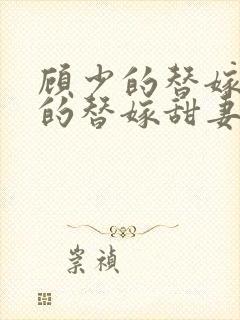 顾少的替嫁
的替嫁甜妻
崇祯